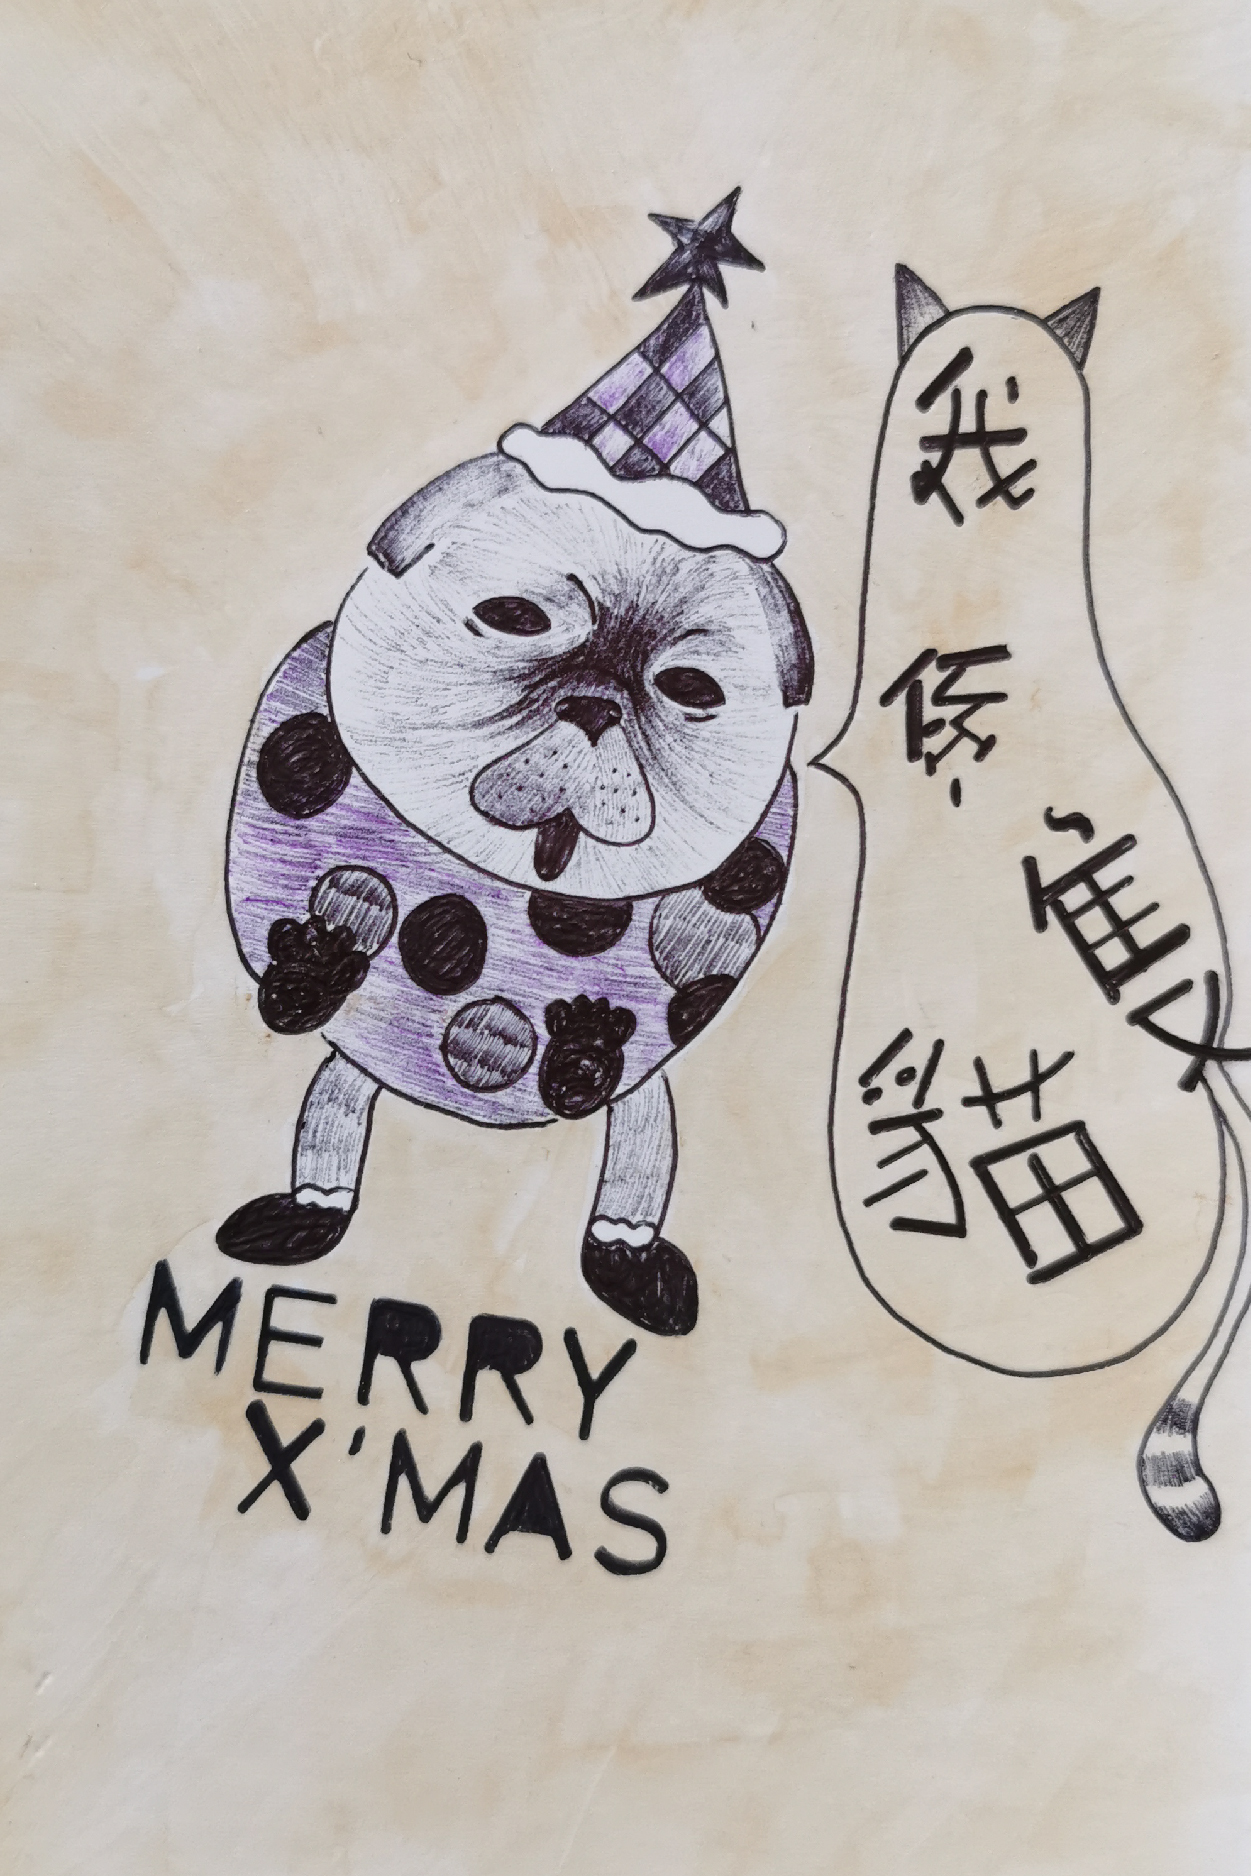 我係隻貓
MERRY
X'MAS